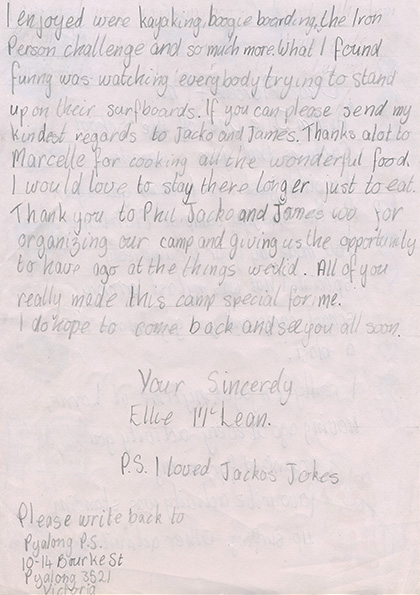 I enjoyed were kayaking, boogie boarding, the Iron
Person challenge and so much more. What I found
funny was watching everybody trying to stand
up on their surfboards. If you can please send my
kindest regards to Jacko and James. Thanks alot to
Marcelle for cooking all the wonderful food.
I would love to stay there longer just to eat.
Thank you to Phil Jacko and James too for
organizing our camp and giving us the opportunity
to have ago at the things we did. All of you
really made this camp special for me.
I do hope to come back and see you all soon.
Your Sincerely
Ellie McLean.
P.S. I loved Jackos Jokes
Please write back to
Pyalong P.S.
10-14 Bourke St
Pyalong 3521
Victoria